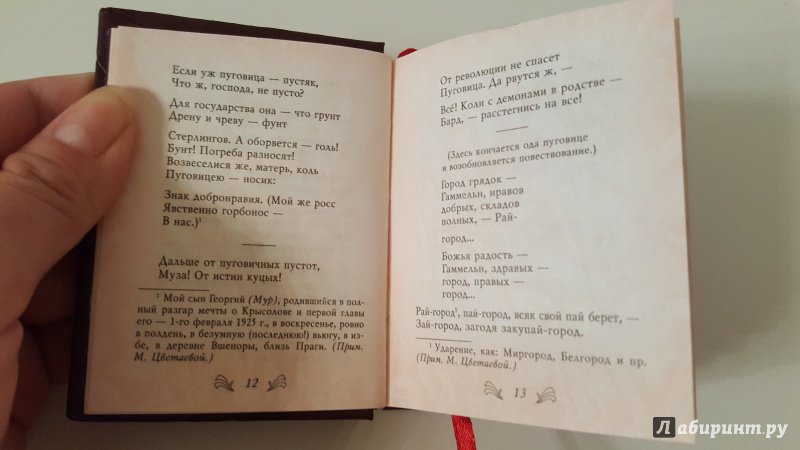 Если уж пуговица — пустяк,
Что ж, господа, не пусто?
Для государства она — что грунт
Древу и чреву — фунт
Стерлингов. А оборвется — голь!
Бунт! Погреба разносят!
Возвеселися же, матерь, коль
Пуговицею — носик:
Знак добронравия. (Мой же росс
Явственно горбонос —
В нас.)¹
Дальше от пуговичных пустот,
Муза! От истин куцых!
¹ Мой сын Георгий (Мур), родившийся в пол-
ный разгар мечты о Крысолове и первой главы
его — 1-го февраля 1925 г., в воскресенье, ровно
в полдень, в безумную (последнюю!) вьюгу, в из-
бе, в деревне Вшеноры, близь Праги. (Прим.
М. Цветаевой.)
12
От революции не спасет
Пуговица. Да рвутся ж, —
Всё! Коли с демонами в родстве —
Бард, — расстегнись на все!
(Здесь кончается ода пуговице
и возобновляется повествование.)
Город грядок —
Гаммельн, нравов
добрых, складов
полных, — Рай-
город...
Божья радость —
Гаммельн, здравых —
город, правых —
город...
Рай-город¹, пай-город, всяк свой пай берет, —
Зай-город, загодя закупай-город.
¹ Ударение, как: Миргород, Белгород и пр.
(Прим. М. Цветаевой.)
13
Лабиринт.ру